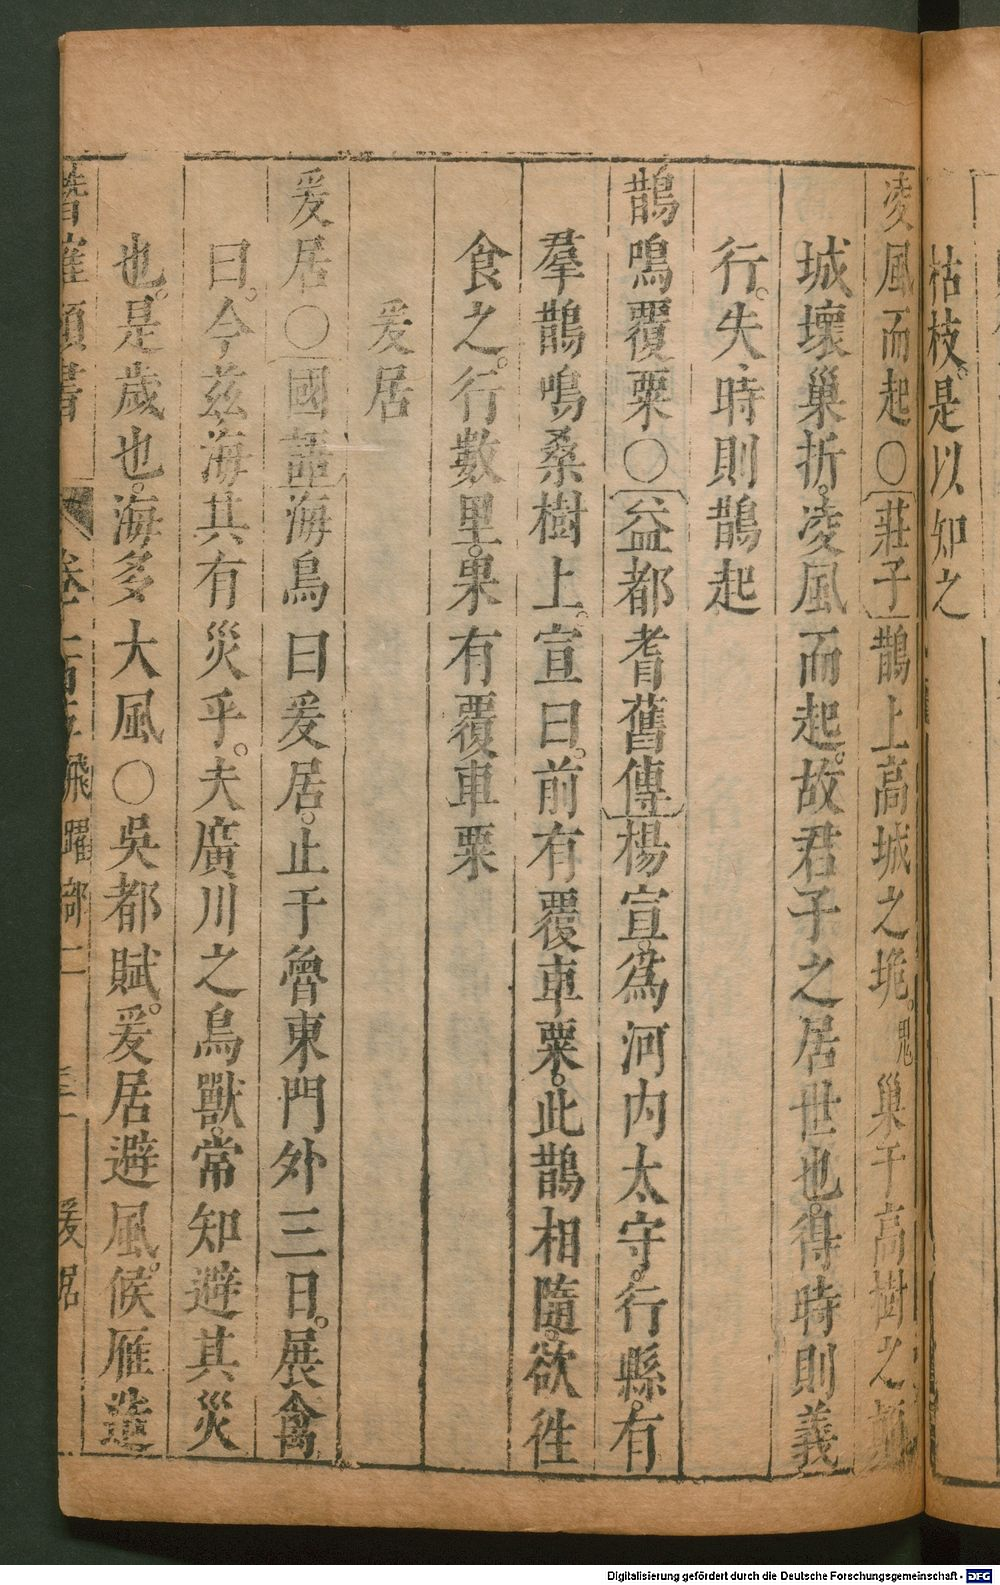 枯枝。是以知之
凌風而起○莊子鵲上高城之垝。巢于高樹之
城壞巢折。凌風而起。故君子之居世也。得時則義
行。失時則鵲起
鵲鳴覆粟○益都耆舊傳楊宣。為河內太守。行縣。有
羣鵲鳴桑樹上。宣曰。前有覆車粟。此鵲相隨。欲往
食之。行數里。果有覆車粟
爰居
爰居○國語海鳥曰爰居。止于魯東門外三日。展禽
曰。今茲海其有災乎。夫廣川之鳥獸。常知避其災
也。是歲也。海多大風○吳都賦。爰居避風。候雁造
飛躍部二
Digitalisierung gefördert durch die Deutsche Forschungsgemeinschaft - DFG